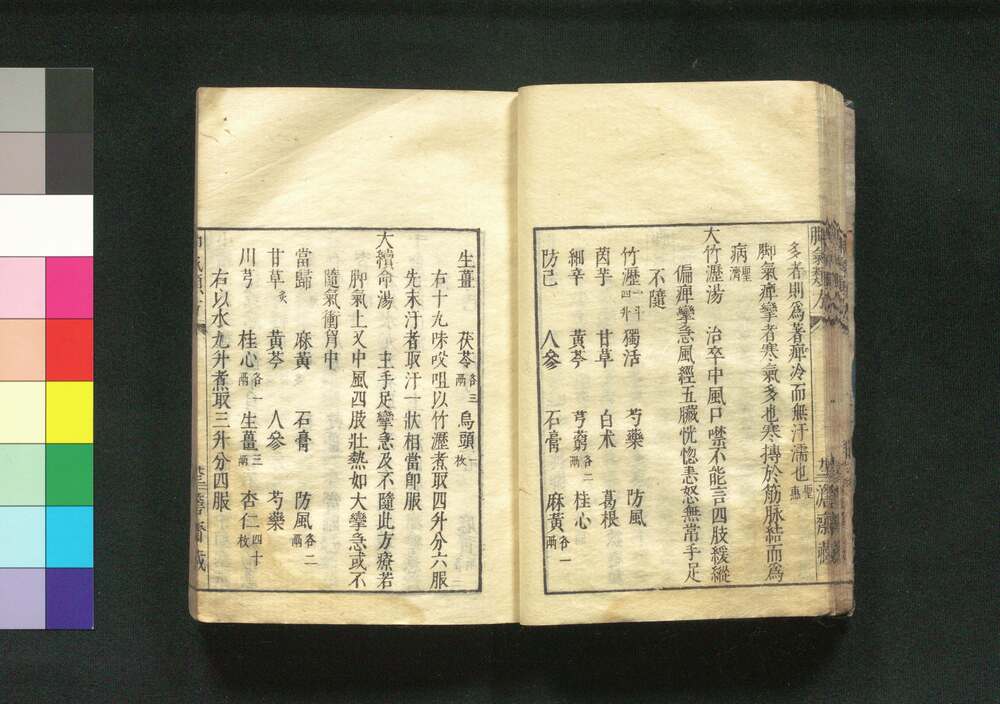 脚氣類方
多者則爲著痺冷而無汗濡也聖惠
脚氣痺攣者寒氣多也寒摶於筋脉結而爲
病聖濟
大竹瀝湯 治卒中風口噤不能言四肢緩縱
偏痺攣急風經五臟恍惚恚怒無常手足
不隨
竹瀝一斗四升 獨活 芍藥 防風
茵芋 甘草 白朮 葛根
細辛 黃芩 芎藭各二兩 桂心
防己 人參 石膏 麻黃各一兩
生薑 茯苓各三兩 烏頭一枚
右十九味㕮咀以竹瀝煮取四升分六服
先未汗者取汗一狀相當卽服
大續命湯 主手足攣急及不隨此方療若
脚氣上又中風四肢壯熱如大攣急或不
隨氣衝胷中
當歸 麻黃 石膏 防風各二兩
甘草炙 黃芩 人參 芍藥
川芎 桂心各一兩 生薑三兩 杏仁四十枚
右以水九升煮取三升分四服